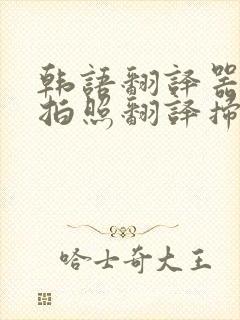 韩語翻譯器
拍照翻譯掃
哈士奇大王